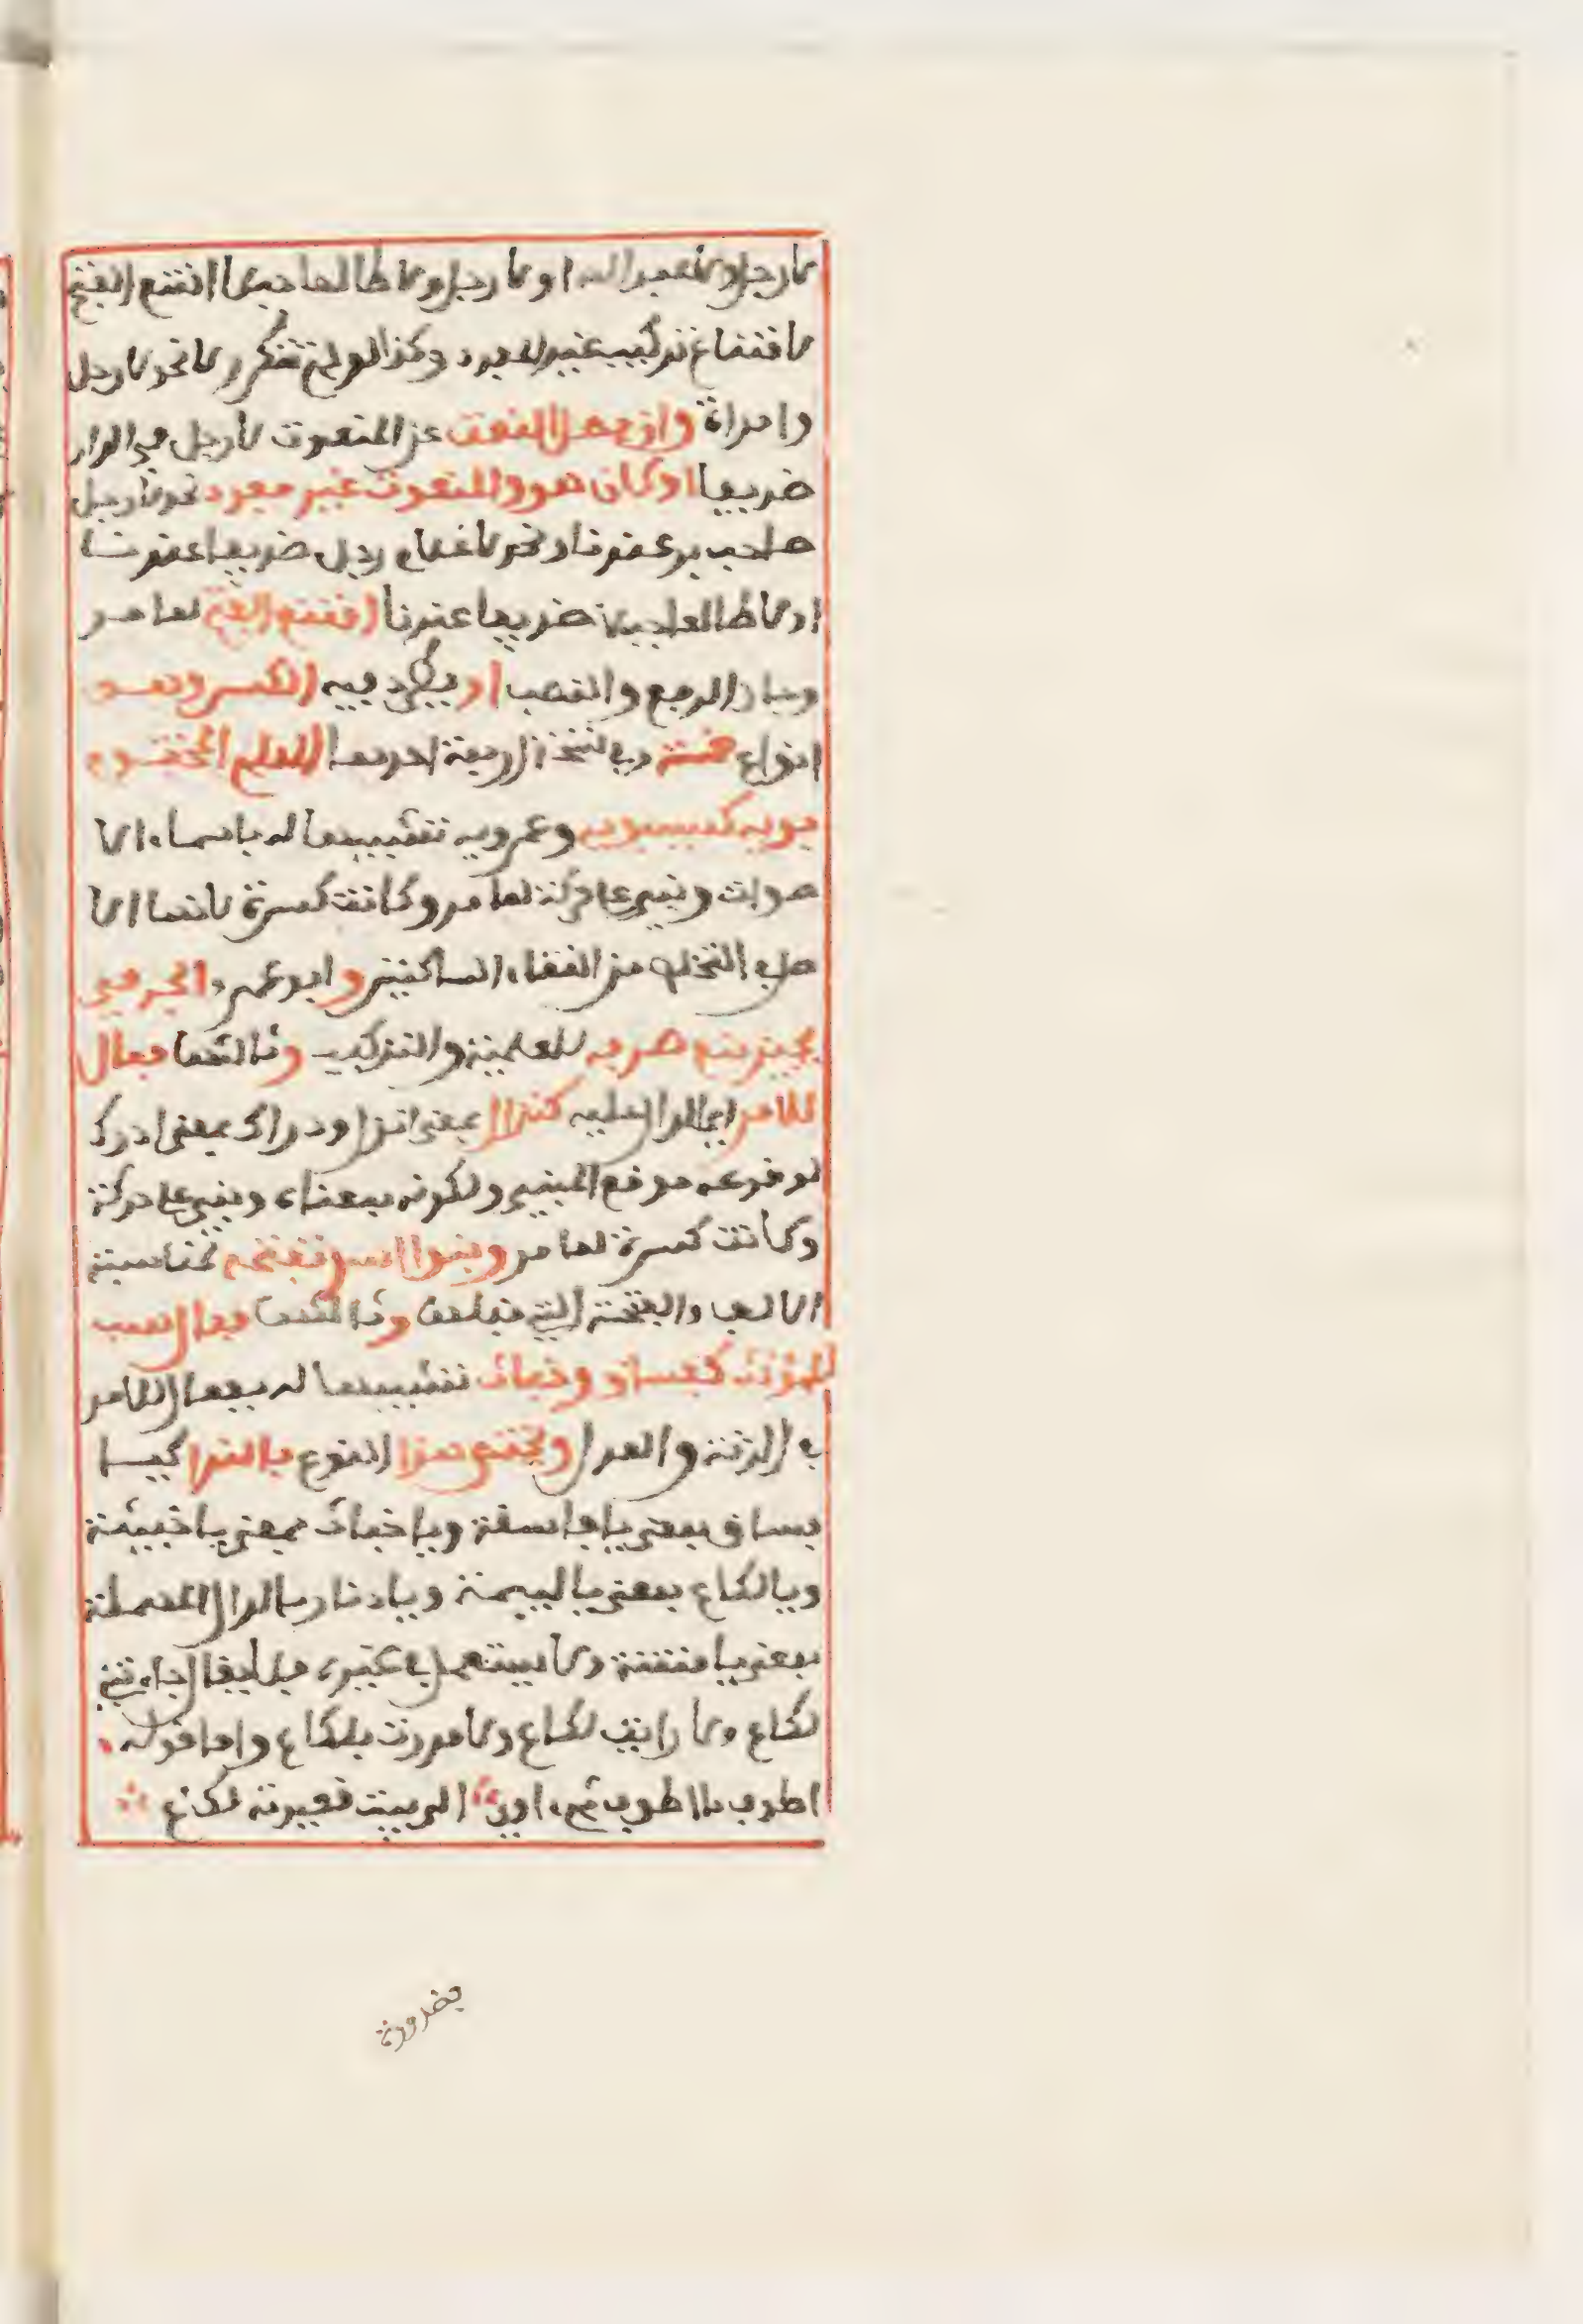 لا رجل ولا عبد الله او لا رجل ولا طالعا جبلا امتنع الفتح
لامتناع تركيب غير المفرد وكذا لو لم تتكرر لا نحو لا رجل
وامراة وان فصل النعت عن المنعوت لا رجل في الدار
ضريفا او كان هو والمنعوت غير مفرد نحو لا رجل
صاحب بر عندنا ونحو لا غلام رجل ضريفا عندنا
او لا طالعا جبلا ضريفا عندنا امتنع الفتح لما مر
وجاز الرفع والنصب او يطرد فيه الكسر وهو
انواع خمسة وفي نسخة اربعة احدها العلم المختوم
بويه كسيبويه وعمرويه تشبيها له باسماء الا
صوات وبني على حركة لما مر وكانت كسرة لانها الا
صل في التخلص من التقاء الساكنين وابو عمر الجرمي
يجيز منع صرفه للعلمية والتركيب وثالثها فعال
للامر اي الدال عليه كنزال بمعنى انزل ودراك بمعنى ادرك
لوقوعه موقع المبني ولكونه بمعناه وبني على حركة
وكانت كسرة لما مر وبنوا اسد تفتحه لمناسبة
الالف والفتحة التي قبلها وثالثها فعال لسب
للمؤنث كفساق وخباث تشبيها له بفعال للامر
في الزنة والعدل ويختص هذا النوع بالندا كيا
فساق بمعنى يا فاسقة ويا خباث بمعنى يا خبيثة
ويا لكاع بمعنى يا لييمة ويا دفار بالدال المهملة
بمعنى يا منتنة ولا يستعمل في غيره فلا يقال جاءتني
لكاع ولا رايت لكاع ولا مررت بلكاع واما قوله
اطوف ما اطوف ثم اوي الى بيت قعيدته لكاع
بضرورة